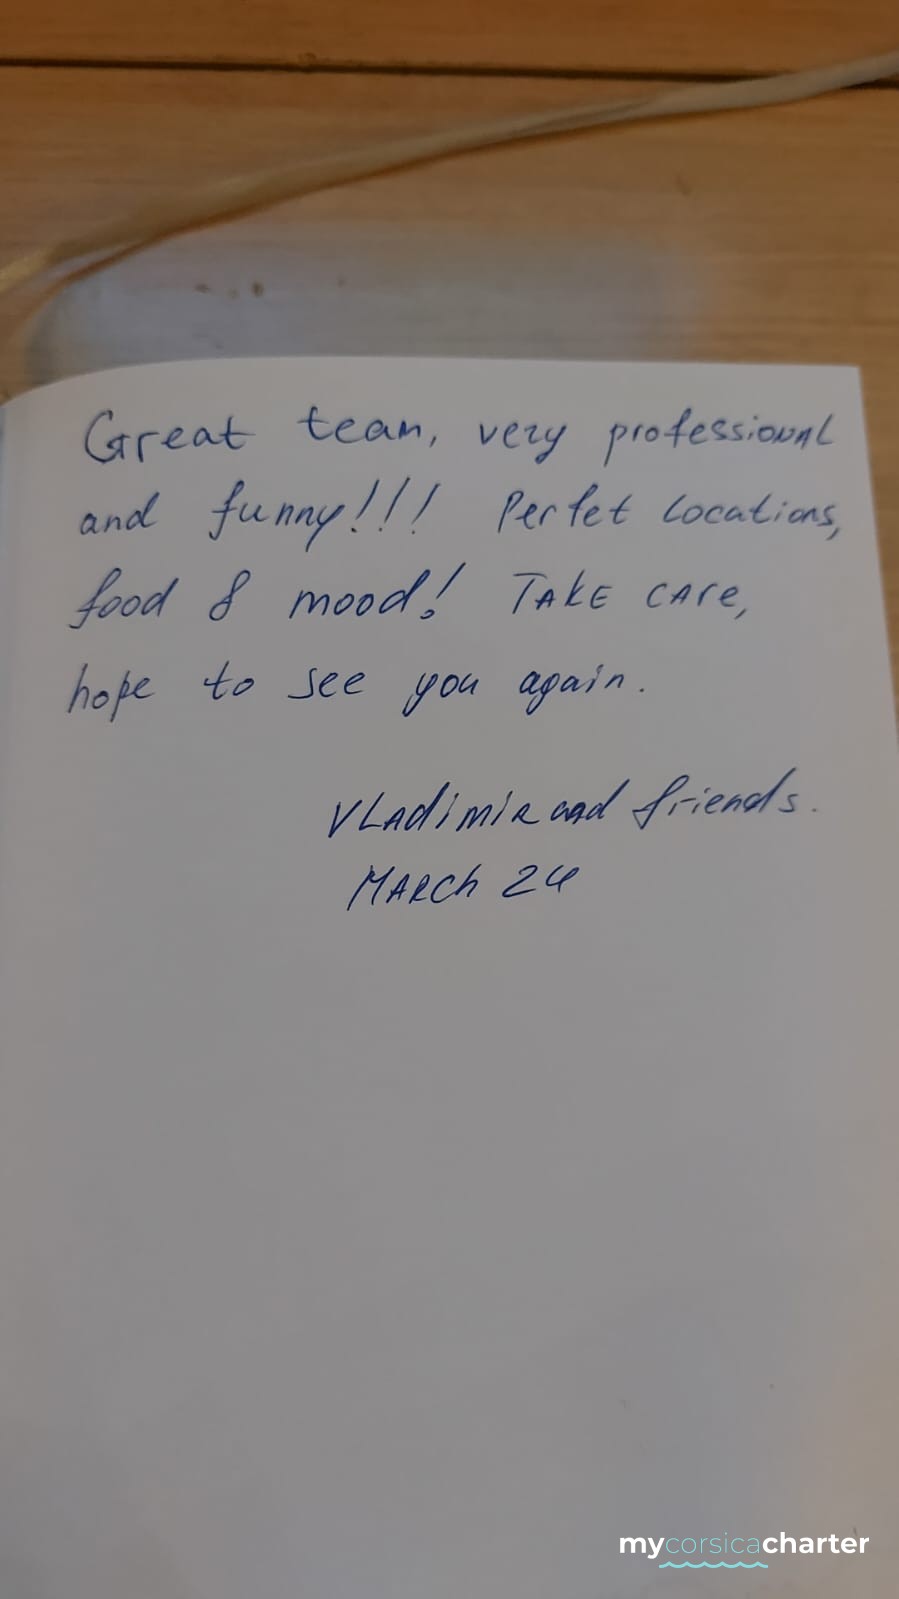 Great team, very professional
and funny!!! Perfet locations,
food & mood! TAKE CAre,
hope to see you again.
VLAdimiR and friends.
MARCh 24
mycorsicacharter